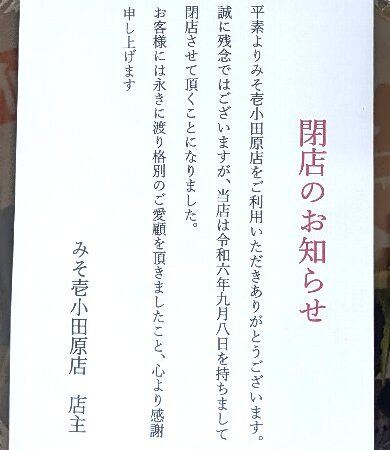 閉店のお知らせ
平素よりみそ壱小田原店をご利用いただきありがとうございます。
誠に残念ではございますが、当店は令和六年九月八日を持ちまして
閉店させて頂くことになりました。
お客様には永きに渡り格別のご愛顧を頂きましたこと、心より感謝
申し上げます
みそ壱小田原店 店主